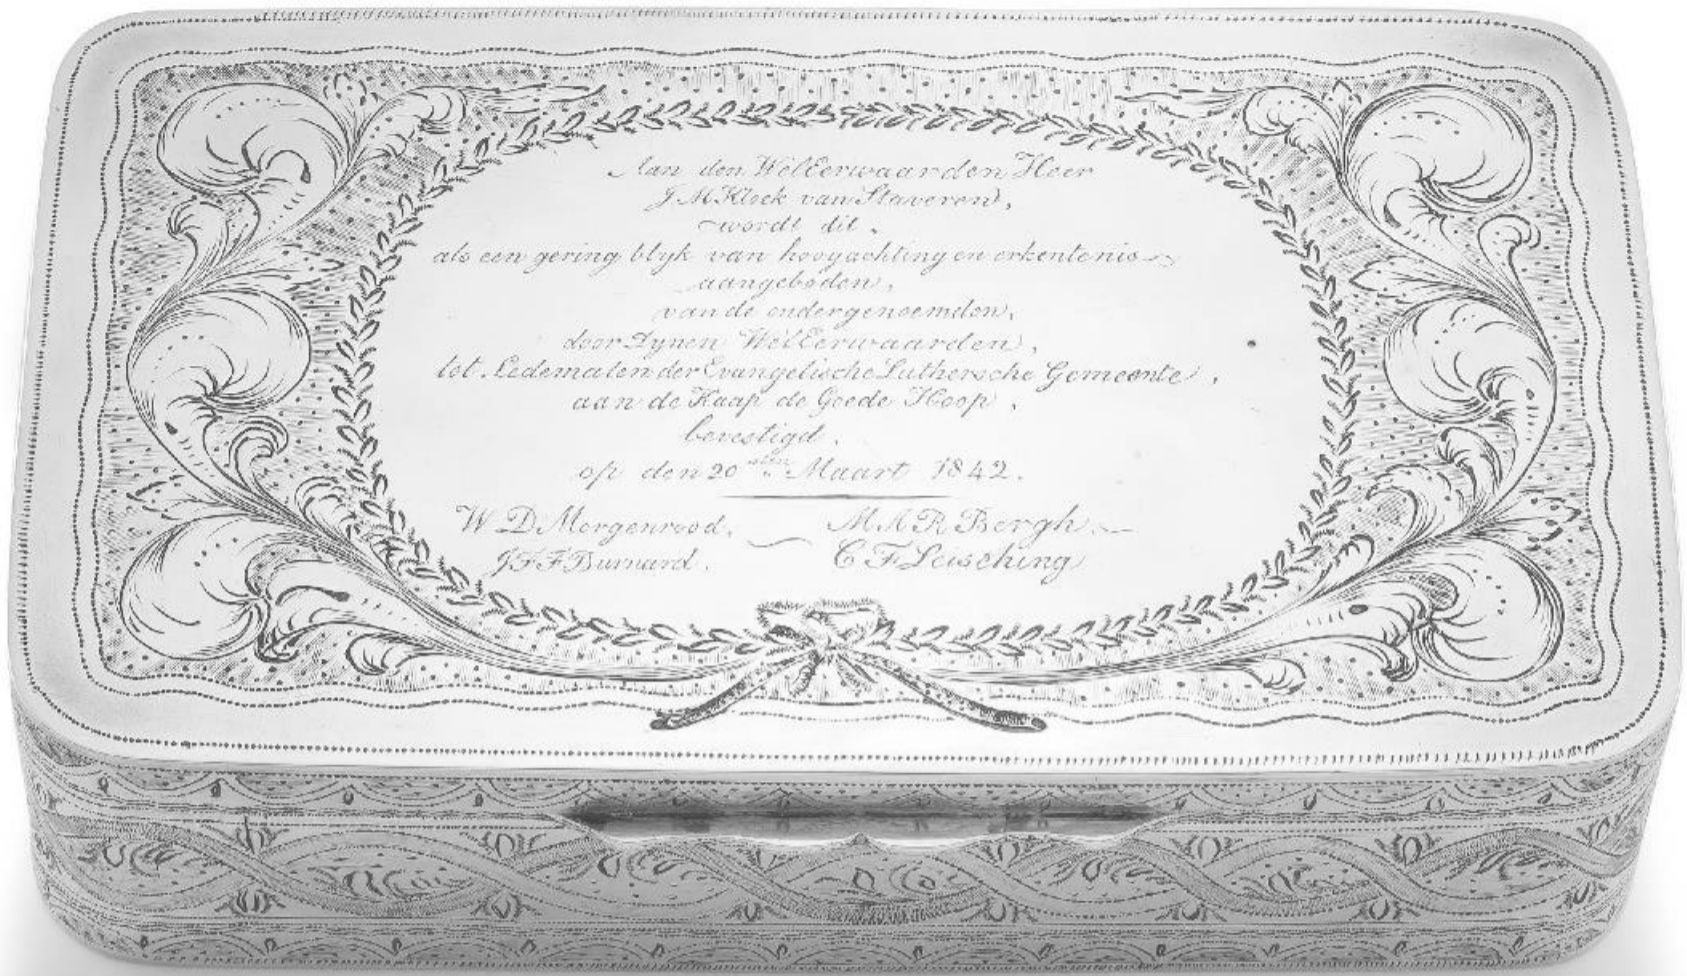 Aan den WelEerwaarden Heer
J. M. Kloek van Staveren,
wordt dit,
als een gering blyk van hoogachting en erkentenis
aangeboden,
van de ondergenoemden,
door Zynen WelEerwaarden,
tot Ledematen der Evangelische Luthersche Gemeente,
aan de Kaap de Goede Hoop,
bevestigd.
op den 20sten Maart 1842.
W. D. Morgenrood. M. A. R. Bergh.
J. F. F. Burnard. C. F. Leisching